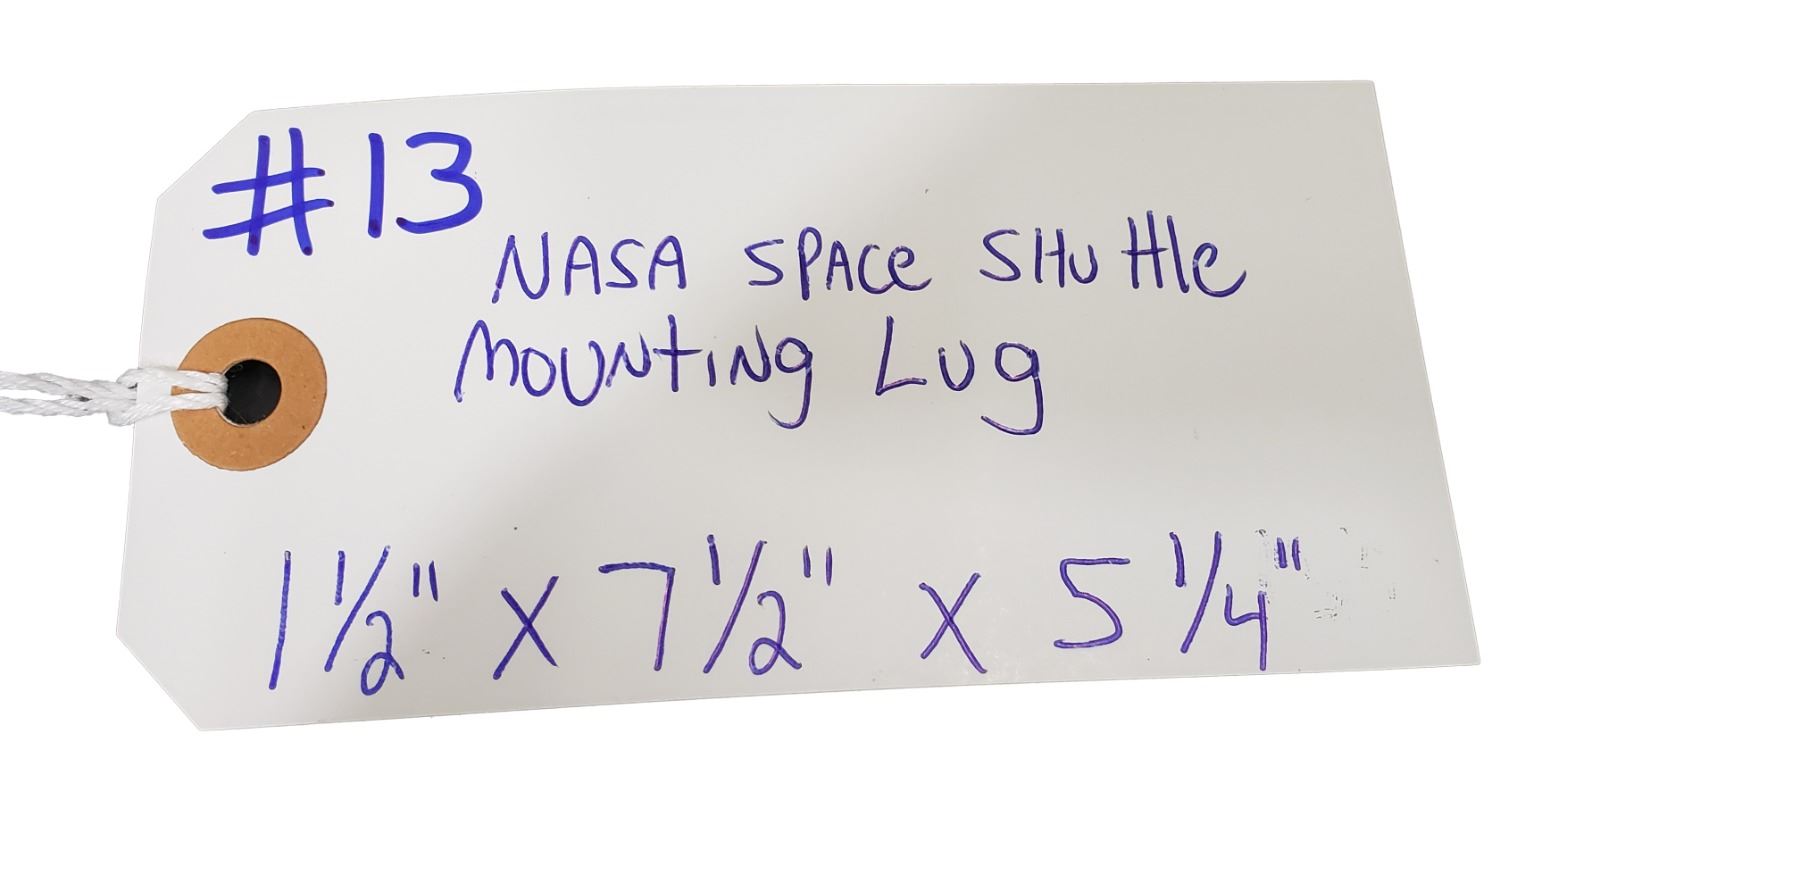 #13
NASA SPACe SHuttle
MOUNtiNg Lug
1 1/2" x 7 1/2" x 5 1/4"